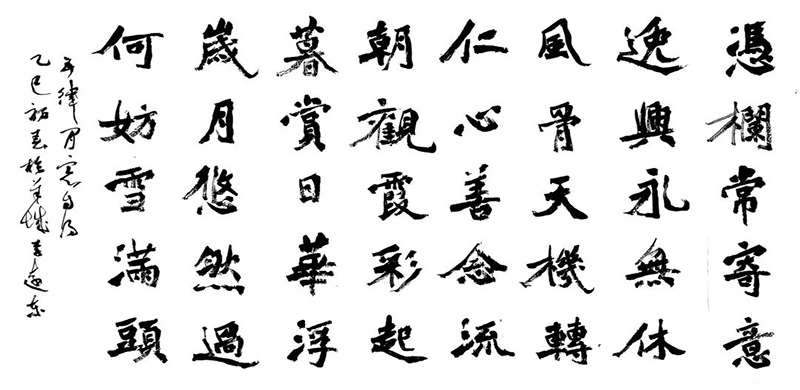 憑欄常寄意
逸興永無休
風骨天機轉
仁心善念流
朝觀霞彩起
暮賞日華浮
歲月悠然過
何妨雪滿頭
五律
乙巳初春於羊城李遠東